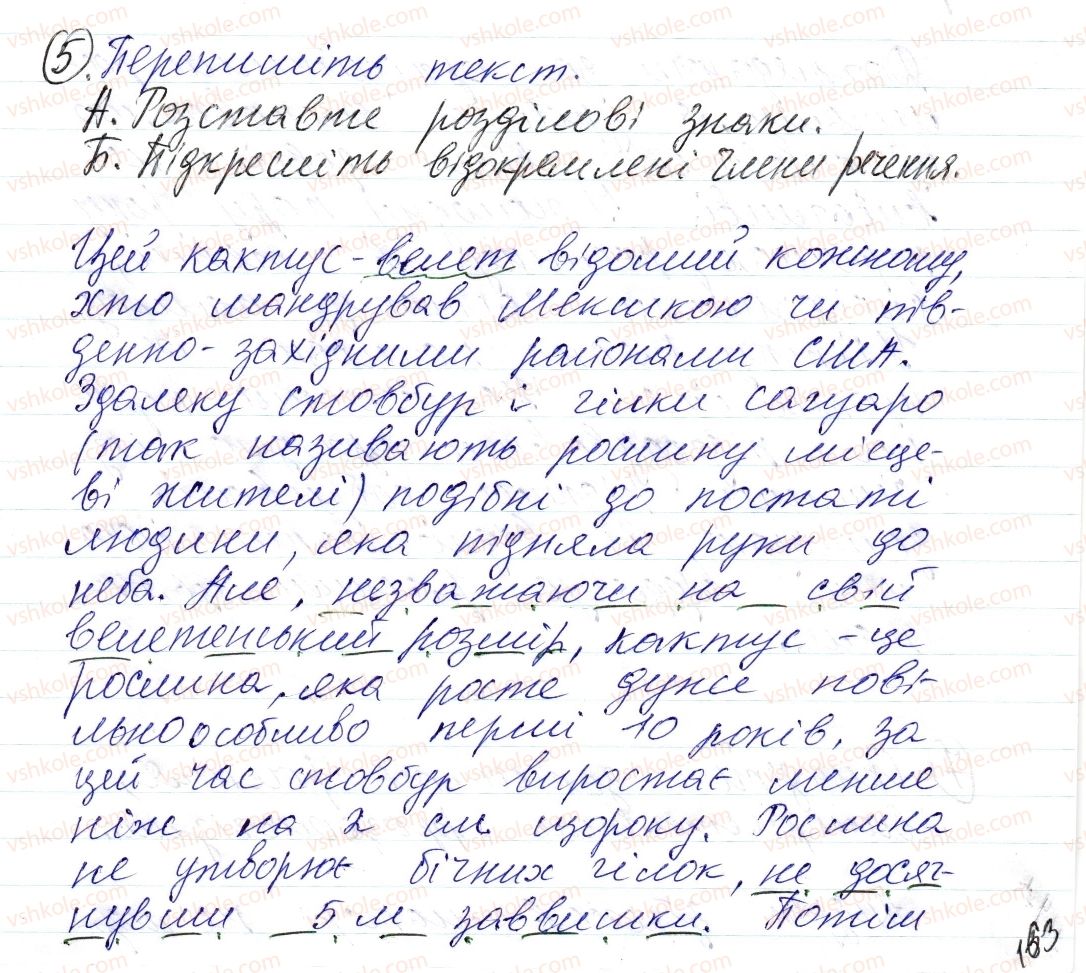 5. Перепишіть текст.
А. Розставте розділові знаки.
Б. Підкресліть відокремлені члени речення.
Цей кактус-велет відомий кожному,
хто мандрував Мексикою чи пів-
денно-західними районами США.
Здалеку стовбур і гілки сагуаро
(так називають рослину місце-
ві жителі) подібні до постаті
людини, яка підняла руки до
неба. Але, незважаючи на свій
велетенський розмір, кактус - це
рослина, яка росте дуже пові-
льно особливо перші 10 років, за
цей час стовбур виростає менше
ніж на 2 см щороку. Рослина
не утворює бічних гілок, не досяг-
нувши 5 м заввишки. Потім
163